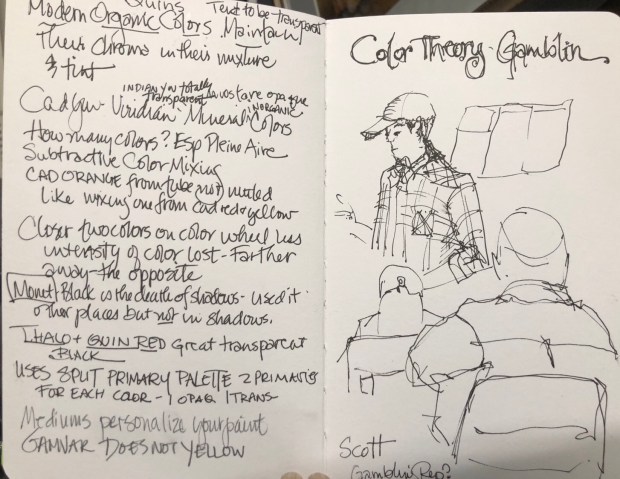 Quins Tend to be transparent
Modern Organic Colors. Maintain
Their Chroma in their mixture
& tint
INDIAN YW totally
transparent most are opaque
INORGANIC
Cad Yw- Viridian Mineral Colors
How many colors? Esp Pleine Aire
Subtractive Color Mixing
CAD ORANGE from tube not muted
like mixing one from cad red & yellow
Closer two colors on color wheel less
intensity of color lost - Farther
away - the opposite
Monet Black is the death of shadows - used it
other places but not in shadows.
THALO + QUIN RED Great transparent
BLACK
USES SPLIT PRIMARY PALETTE 2 PRIMARIES
FOR EACH COLOR - 1 OPAQ 1 TRANS-
Mediums personalize your paint
GAMVAR DOES NOT YELLOW
Color Theory - Gamblin
Scott
Gamblin's Rep?